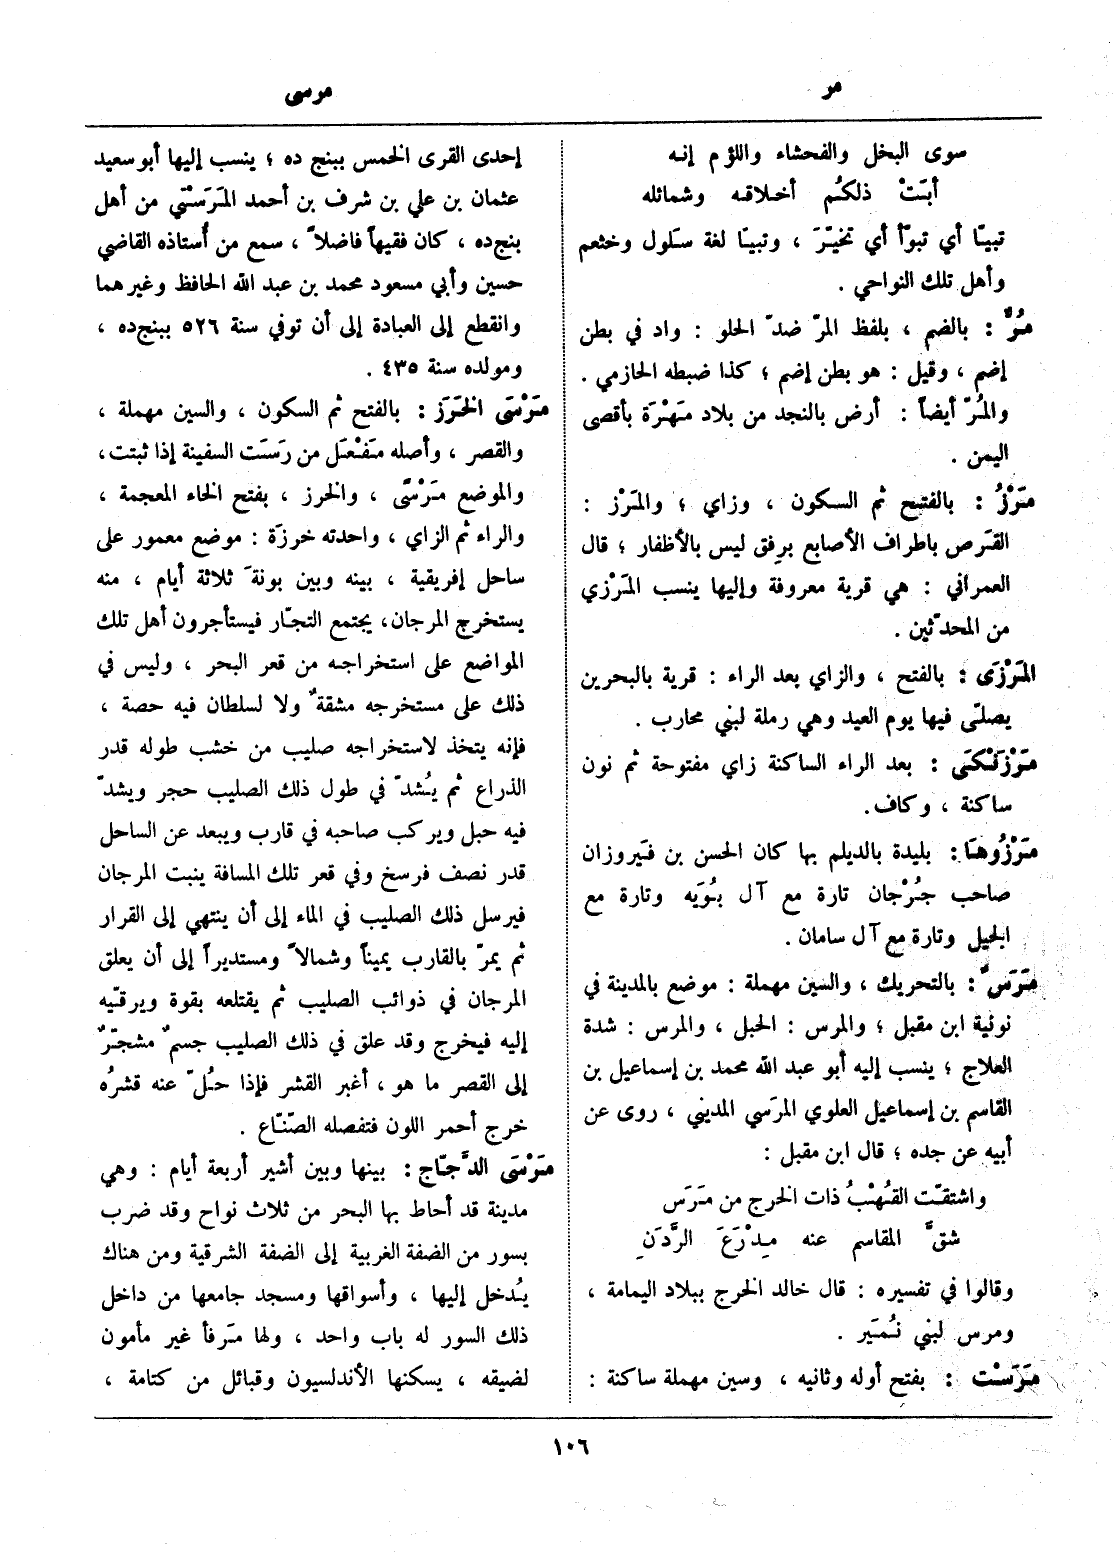 مر
مرسى
سوى البخل والفحشاء واللؤم إنه
أبَتْ ذلكُم أخلاقه وشمائله
تبيّا أي تبوّأ أي تخيّرَ ، وتبيّا لغة سلول وخثعم
وأهل تلك النواحي .
مُرٌّ : بالضم ، بلفظ المرّ ضدّ الحلو : واد في بطن
إضم ، وقيل : هو بطن إضم ؛ كذا ضبطه الحازمي .
والمُرّ أيضاً : أرض بالنجد من بلاد مَهْرَة بأقصى
اليمن .
مَرْزُ : بالفتح ثم السكون ، وزاي ؛ والمَرْز :
القَرص باطراف الأصابع برِفق ليس بالأظفار ؛ قال
العمراني : هي قرية معروفة وإليها ينسب المَرْزي
من المحدّثين .
المَرْزَى : بالفتح ، والزاي بعد الراء : قرية بالبحرين
يصلّى فيها يوم العيد وهي رملة لبني محارب .
مَرْزَنْكَى : بعد الراء الساكنة زاي مفتوحة ثم نون
ساكنة ، وكاف.
مَرْزُوهَا : بليدة بالديلم بها كان الحسن بن فَيروزان
صاحب جُرْجان تارة مع آل بُوَيه وتارة مع
الجيل وتارة مع آل سامان .
مَرَسٌ : بالتحريك ، والسين مهملة : موضع بالمدينة في
نونية ابن مقبل ؛ والمرس : الحبل ، والمرس : شدة
العلاج ؛ ينسب إليه أبو عبد الله محمد بن إسماعيل بن
القاسم بن إسماعيل العلوي المرَسي المديني ، روى عن
أبيه عن جده ؛ قال ابن مقبل :
واشتقّت القُهْبُ ذات الخرج من مَرَس
شقَّ المقاسم عنه مِدْرَعَ الرَّدَنِ
وقالوا في تفسيره : قال خالد الخرج ببلاد اليمامة ،
ومرس لبني نُمَير .
مَرَسْت : بفتح أوله وثانيه ، وسين مهملة ساكنة :
إحدى القرى الخمس ببنج ده ؛ ينسب إليها أبو سعيد
عثمان بن علي بن شرف بن أحمد المَرَسْتي من أهل
بنج‌ده ، كان فقيهاً فاضلاً ، سمع من أُستاذه القاضي
حسين وأبي مسعود محمد بن عبد الله الحافظ وغيرهما
وانقطع إلى العبادة إلى أن توفي سنة ٥٢٦ ببنج‌ده ،
ومولده سنة ٤٣٥ .
مَرْسَى الخَرَز : بالفتح ثم السكون ، والسين مهملة ،
والقصر ، وأصله مَفْعَل من رَسَت السفينة إذا ثبتت ،
والموضع مَرْسًى ، والخرز ، بفتح الخاء المعجمة ،
والراء ثم الزاي ، واحدته خرزَة : موضع معمور على
ساحل إفريقية ، بينه وبين بونةَ ثلاثة أيام ، منه
يستخرج المرجان، يجتمع التجّار فيستأجرون أهل تلك
المواضع على استخراجه من قعر البحر ، وليس في
ذلك على مستخرجه مشقةٌ ولا لسلطان فيه حصة ،
فإنه يتخذ لاستخراجه صليب من خشب طوله قدر
الذراع ثم يُشدّ في طول ذلك الصليب حجر ويشدّ
فيه حبل ويركب صاحبه في قارب ويبعد عن الساحل
قدر نصف فرسخ وفي قعر تلك المسافة ينبت المرجان
فيرسل ذلك الصليب في الماء إلى أن ينتهي إلى القرار
ثم يمرّ بالقارب يميناً وشمالاً ومستديراً إلى أن يعلق
المرجان في ذوائب الصليب ثم يقتلعه بقوة ويرقّيه
إليه فيخرج وقد علق في ذلك الصليب جسمٌ مشجّرٌ
إلى القصر ما هو ، أغبر القشر فإذا حُلّ عنه قشرُه
خرج أحمر اللون فتفصله الصّنّاع .
مَرْسَى الدَّجّاج : بينها وبين أشير أربعة أيام : وهي
مدينة قد أحاط بها البحر من ثلاث نواح وقد ضرب
بسور من الضفة الغربية إلى الضفة الشرقية ومن هناك
يُدخل إليها ، وأسواقها ومسجد جامعها من داخل
ذلك السور له باب واحد ، ولها مَرفأ غير مأمون
لضيقه ، يسكنها الأندلسيون وقبائل من كتامة ،
١٠٦